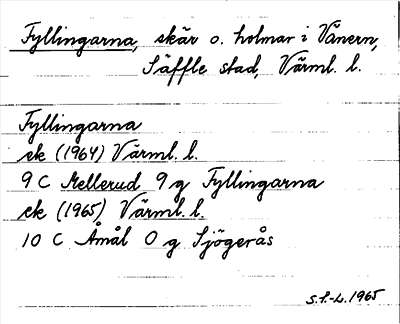 Fyllingarna, skär o. holmar i Vänern,
Säffle stad, Värml. l.
Fyllingarna
ek (1964) Värml. l.
9 C Mellerud 9 g Fyllingarna
ek (1965) Värml. l.
10 C Åmål 0 g Sjögerås
S.S-L. 1965